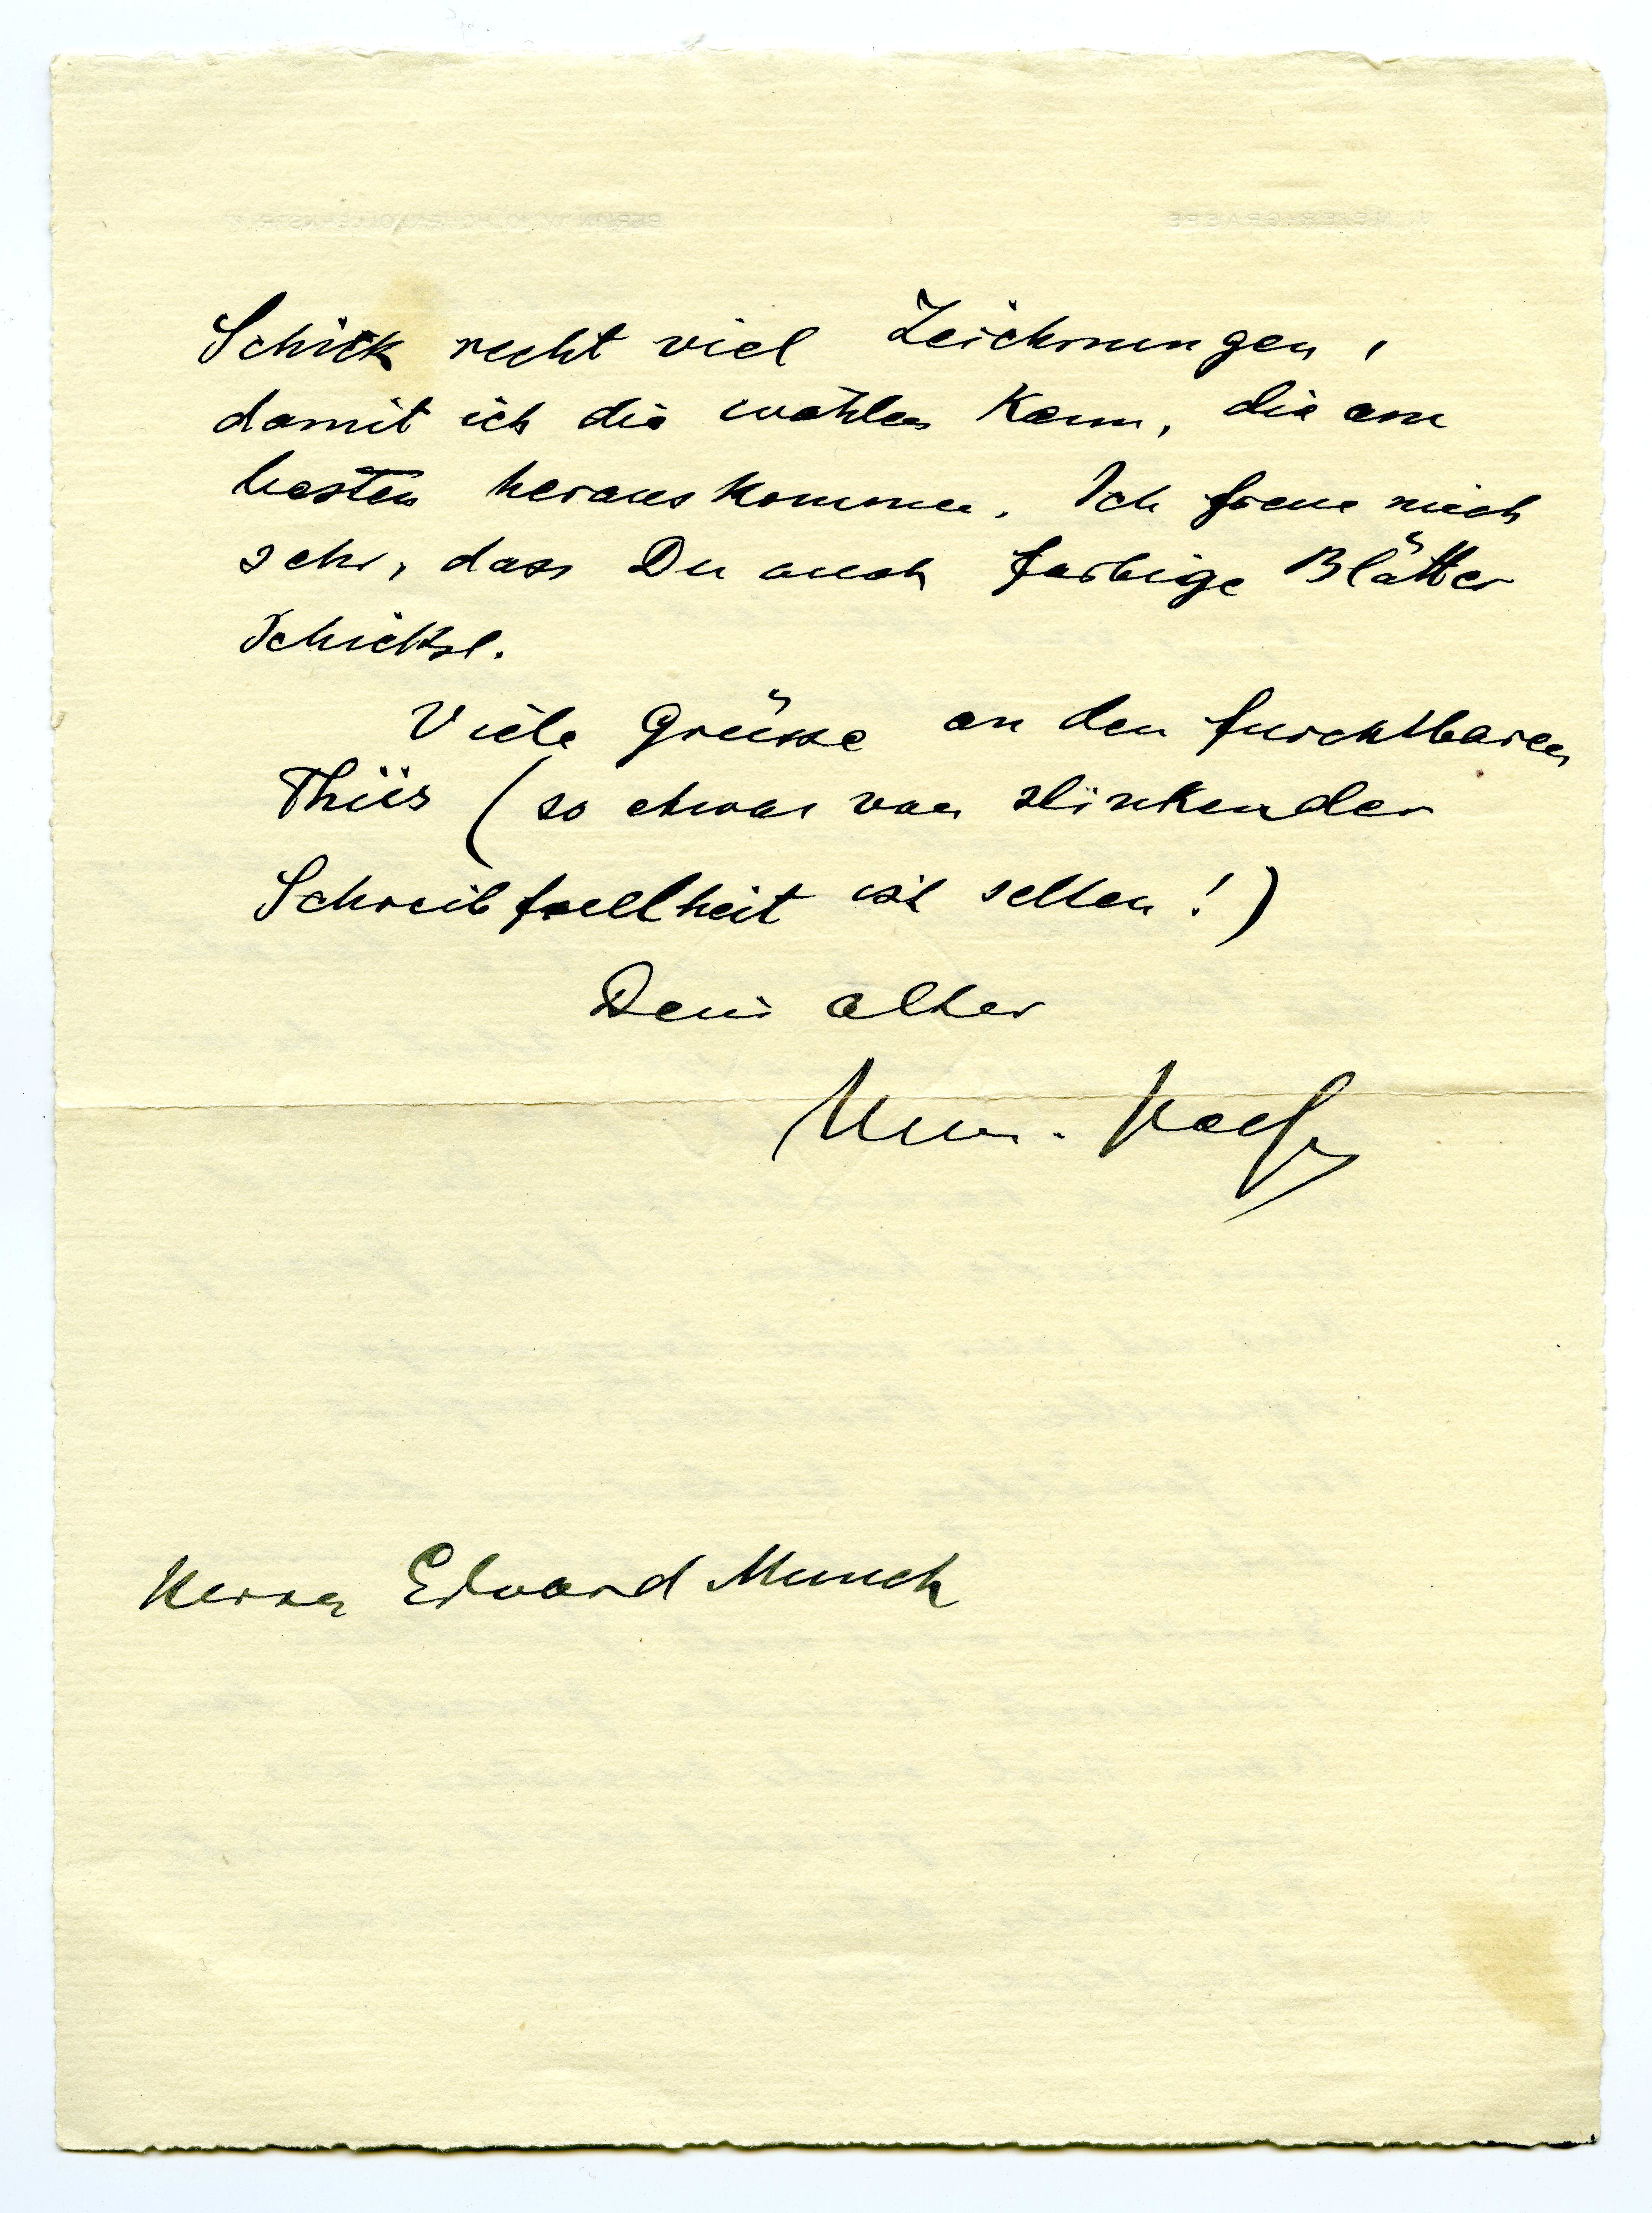 Schick recht viel Zeichnungen,
damit ich die wählen kann, die am
besten herauskommen. Ich freue mich
sehr, dass Du auch farbige Blätter
schickst.
Viele Grüsse an den furchtbaren
Thiis (so etwas von stinkender
Schreibfaulheit ist selten!)
Dein alter
Herrn Edvard Munch